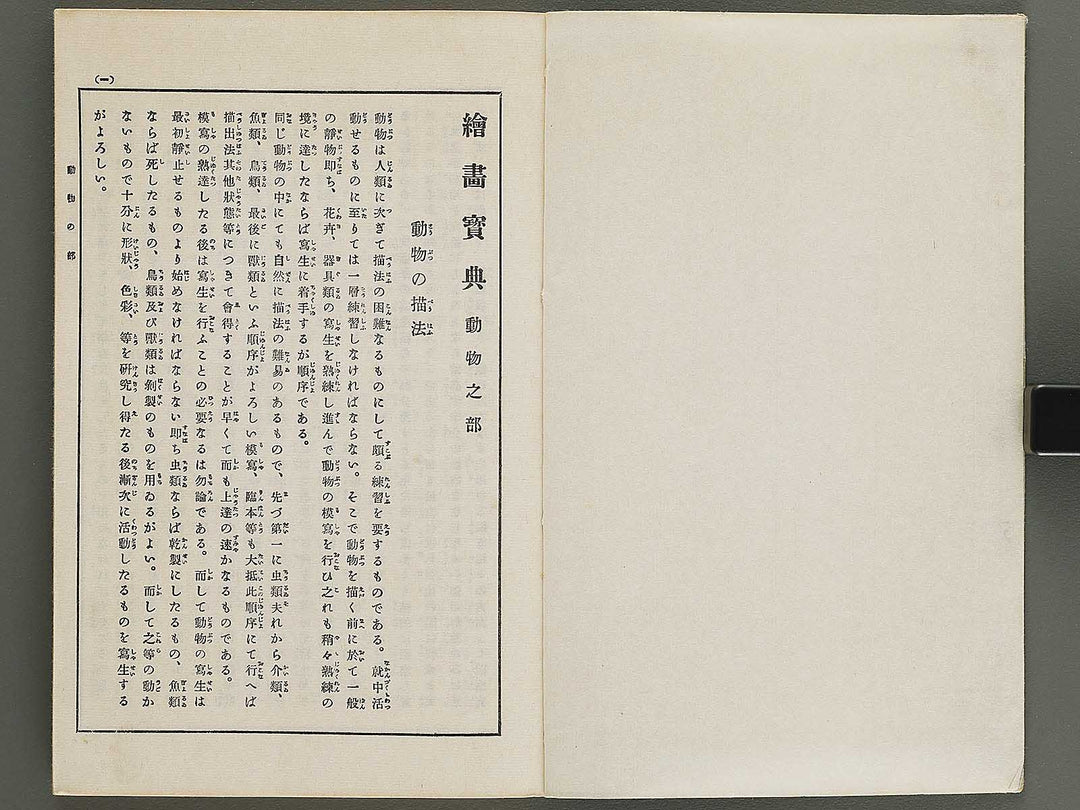 繪畫寶典動物之部
動物の描法
動物は人類に次ぎて描法の困難なるものにして頗る練習を要するものである。就中活
動せるものに至りては一層練習しなければならない。そこで動物を描く前に於て一般
の靜物即ち、花卉、器具類の寫生を熟練し進んで動物の模寫を行ひ之れも稍々熟練の
境に達したならば寫生に着手するが順序である。
同じ動物の中にても自然に描法の難易のあるもので、先づ第一に虫類夫れから介類、
魚類、鳥類、最後に獸類といふ順序がよろしい模寫、臨本等も大抵此順序にて行へば
描出法其他狀態等につきて會得することが早くて而も上達の速かなるものである。
模寫の熟達したる後は寫生を行ふことの必要なるは勿論である。而して動物の寫生は
最初靜止せるものより始めなければならない即ち虫類ならば乾製にしたるもの、魚類
ならば死したるもの、鳥類及び獸類は剝製のものを用ゐるがよい。而して之等の動か
ないもので十分に形狀、色彩、等を研究し得たる後漸次に活動したるものを寫生する
がよろしい。
動物の部
(一)